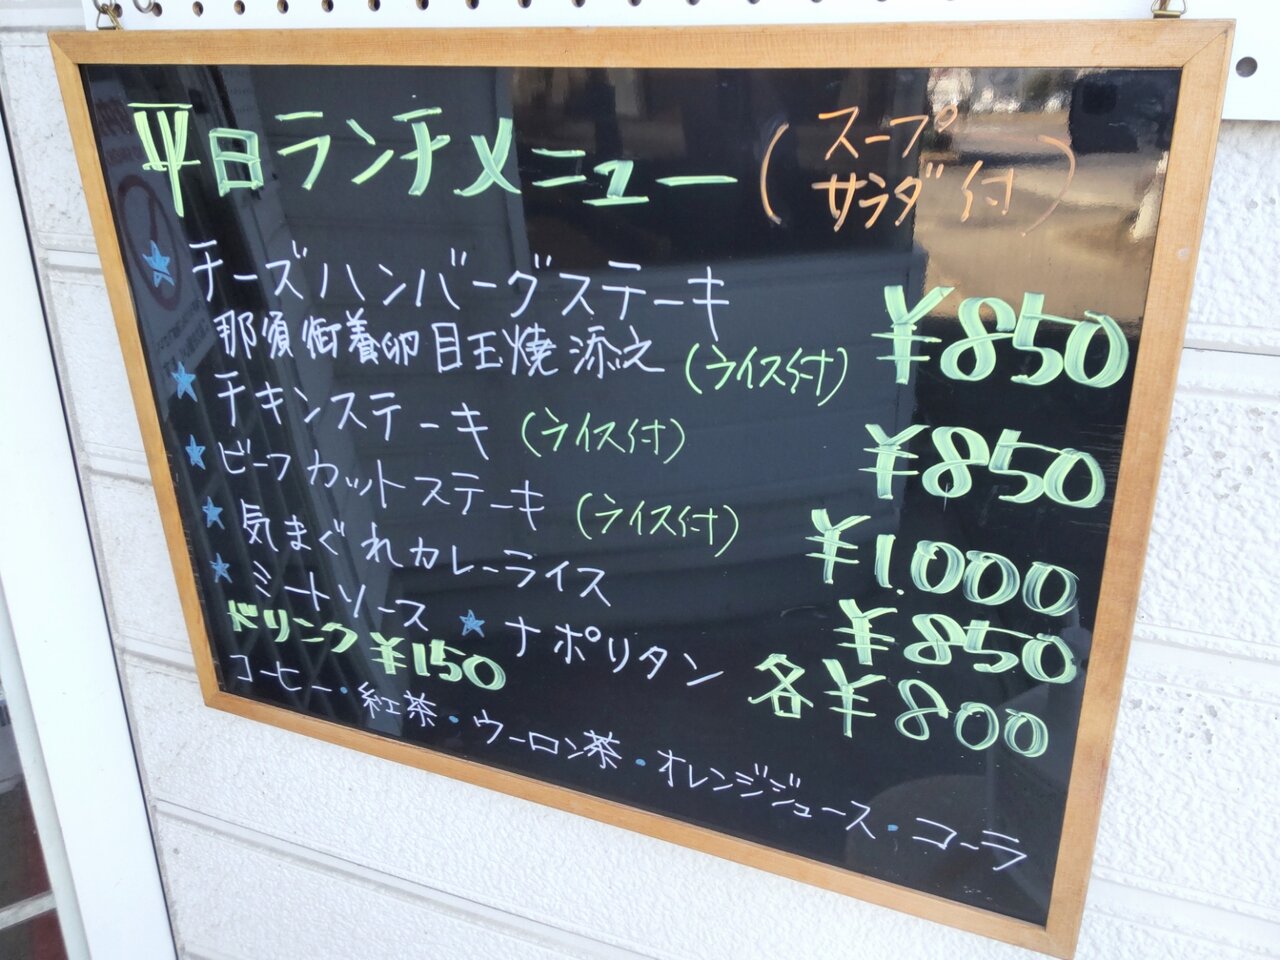 平日ランチメニュー(スープ サラダ付)
★チーズハンバーグステーキ
那須御養卵目玉焼添え(ライス付) ¥850
★チキンステーキ(ライス付) ¥850
★ビーフカットステーキ(ライス付) ¥1.000
★気まぐれカレーライス ¥850
★ミートソース ★ナポリタン 各¥800
ドリンク¥150
コーヒー・紅茶・ウーロン茶・オレンジジュース・コーラ